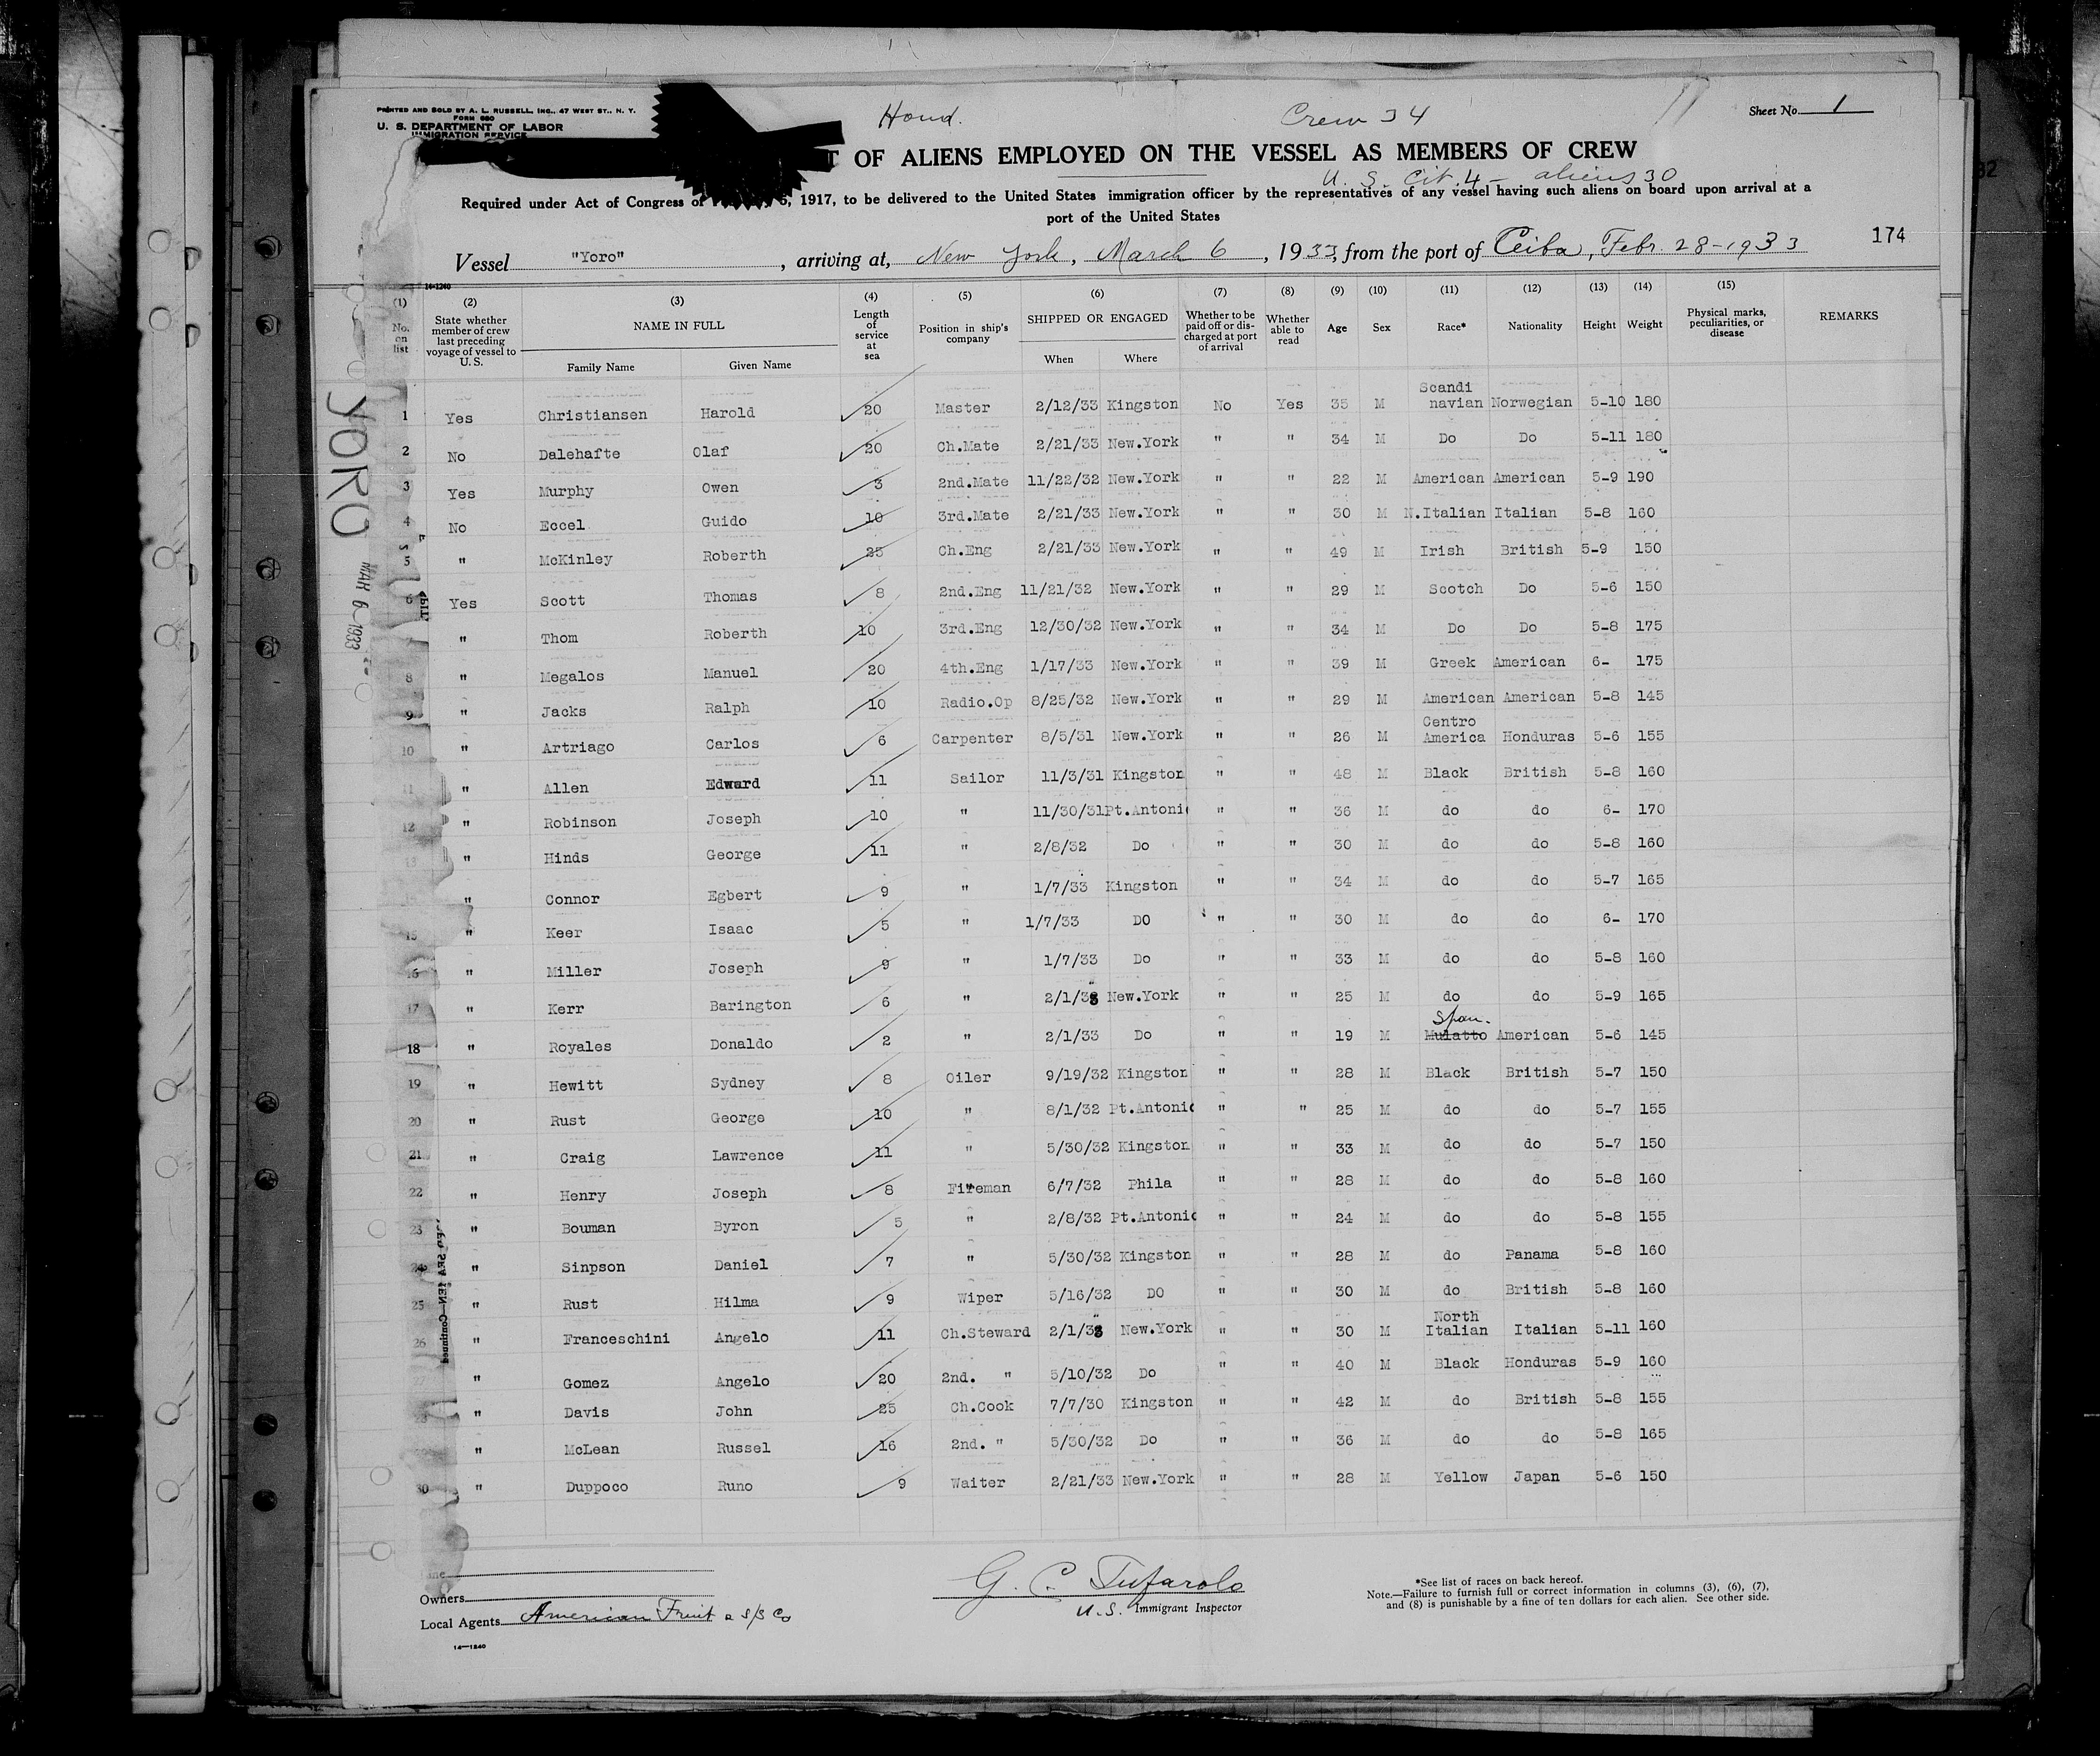 PRINTED AND SOLD BY A. L. RUSSELL, INC., 47 WEST ST., N. Y.
FORM 680
U. S. DEPARTMENT OF LABOR
IMMIGRATION SERVICE
Hond.
Crew 34
Sheet No. 1
T OF ALIENS EMPLOYED ON THE VESSEL AS MEMBERS OF CREW
U. S. Cit. 4 - aliens 30
Required under Act of Congress of 5, 1917, to be delivered to the United States immigration officer by the representatives of any vessel having such aliens on board upon arrival at a
port of the United States
Vessel "Yoro", arriving at, New York, March 6, 1933, from the port of Ceiba, Febr. 28-1933
174
14-1240
(1) (2) (3) (4) (5) (6) (7) (8) (9) (10) (11) (12) (13) (14) (15)
No. on list State whether member of crew last preceding voyage of vessel to U. S. NAME IN FULL Family Name Given Name Length of service at sea Position in ship's company SHIPPED OR ENGAGED When Where Whether to be paid off or discharged at port of arrival Whether able to read Age Sex Race* Nationality Height Weight Physical marks, peculiarities, or disease REMARKS
1 Yes Christiansen Harold 20 Master 2/12/33 Kingston No Yes 35 M Scandi navian Norwegian 5-10 180
2 No Dalehafte Olaf 20 Ch.Mate 2/21/33 New.York " " 34 M Do Do 5-11 180
3 Yes Murphy Owen 3 2nd.Mate 11/22/32 New.York " " 22 M American American 5-9 190
4 No Eccel Guido 10 3rd.Mate 2/21/33 New.York " " 30 M N.Italian Italian 5-8 160
5 " McKinley Roberth 25 Ch.Eng 2/21/33 New.York " " 49 M Irish British 5-9 150
6 Yes Scott Thomas 8 2nd.Eng 11/21/32 New.York " " 29 M Scotch Do 5-6 150
" Thom Roberth 10 3rd.Eng 12/30/32 New.York " " 34 M Do Do 5-8 175
8 " Megalos Manuel 20 4th.Eng 1/17/33 New.York " " 39 M Greek American 6- 175
9 " Jacks Ralph 10 Radio.Op 8/25/32 New.York " " 29 M American American 5-8 145
10 " Artriago Carlos 6 Carpenter 8/5/31 New.York " " 26 M Centro America Honduras 5-6 155
11 " Allen Edward 11 Sailor 11/3/31 Kingston " " 48 M Black British 5-8 160
12 " Robinson Joseph 10 " 11/30/31 Pt.Antonio " " 36 M do do 6- 170
13 " Hinds George 11 " 2/8/32 Do " " 30 M do do 5-8 160
" Connor Egbert 9 " 1/7/33 Kingston " " 34 M do do 5-7 165
15 " Keer Isaac 5 " 1/7/33 DO " " 30 M do do 6- 170
16 " Miller Joseph 9 " 1/7/33 Do " " 33 M do do 5-8 160
17 " Kerr Barington 6 " 2/1/33 New.York " " 25 M do do 5-9 165
18 " Royales Donaldo 2 " 2/1/33 Do " " 19 M Span. Mulatto American 5-6 145
19 " Hewitt Sydney 8 Oiler 9/19/32 Kingston " " 28 M Black British 5-7 150
20 " Rust George 10 " 8/1/32 Pt.Antonio " " 25 M do do 5-7 155
21 " Craig Lawrence 11 " 5/30/32 Kingston " " 33 M do do 5-7 150
22 " Henry Joseph 8 Fireman 6/7/32 Phila " " 28 M do do 5-8 160
23 " Bouman Byron 5 " 2/8/32 Pt.Antonio " " 24 M do do 5-8 155
24 " Sinpson Daniel 7 " 5/30/32 Kingston " " 28 M do Panama 5-8 160
25 " Rust Hilma 9 Wiper 5/16/32 DO " " 30 M do British 5-8 160
26 " Franceschini Angelo 11 Ch.Steward 2/1/33 New.York " " 30 M North Italian Italian 5-11 160
" Gomez Angelo 20 2nd. " 5/10/32 Do " " 40 M Black Honduras 5-9 160
" Davis John 25 Ch.Cook 7/7/30 Kingston " " 42 M do British 5-8 155
" McLean Russel 16 2nd. " 5/30/32 Do " " 36 M do do 5-8 165
30 " Duppoco Runo 9 Waiter 2/21/33 New.York " " 28 M Yellow Japan 5-6 150
YORO
MAR 6-1933
Owners
Local Agents American Fruit & S/S Co
14-1240
G. C. Tufarolo
U.S. Immigrant Inspector
*See list of races on back hereof.
Note.—Failure to furnish full or correct information in columns (3), (6), (7),
and (8) is punishable by a fine of ten dollars for each alien. See other side.